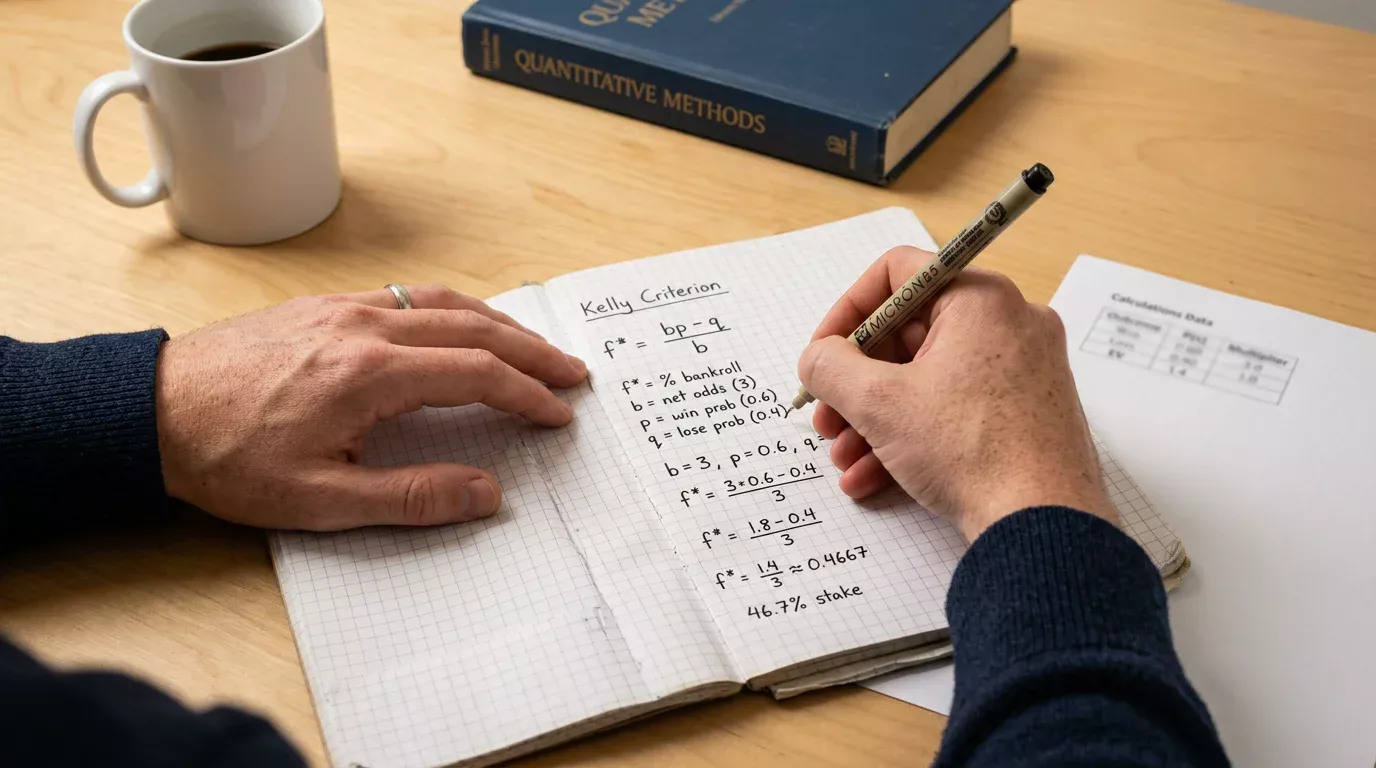 QUANTITATIVE METHODS
Kelly Criterion
f* = bp - q
b
f* = % bankroll
b = net odds (3)
p = win prob (0.6)
q = lose prob (0.4)
b = 3, p = 0.6, q =
f* = 3*0.6 - 0.4
3
f* = 1.8 - 0.4
3
f* = 1.4
3
≈ 0.4667
46.7% stake
MICRON 05
Calculations Data
Outcome P(t) Multiplier
EV